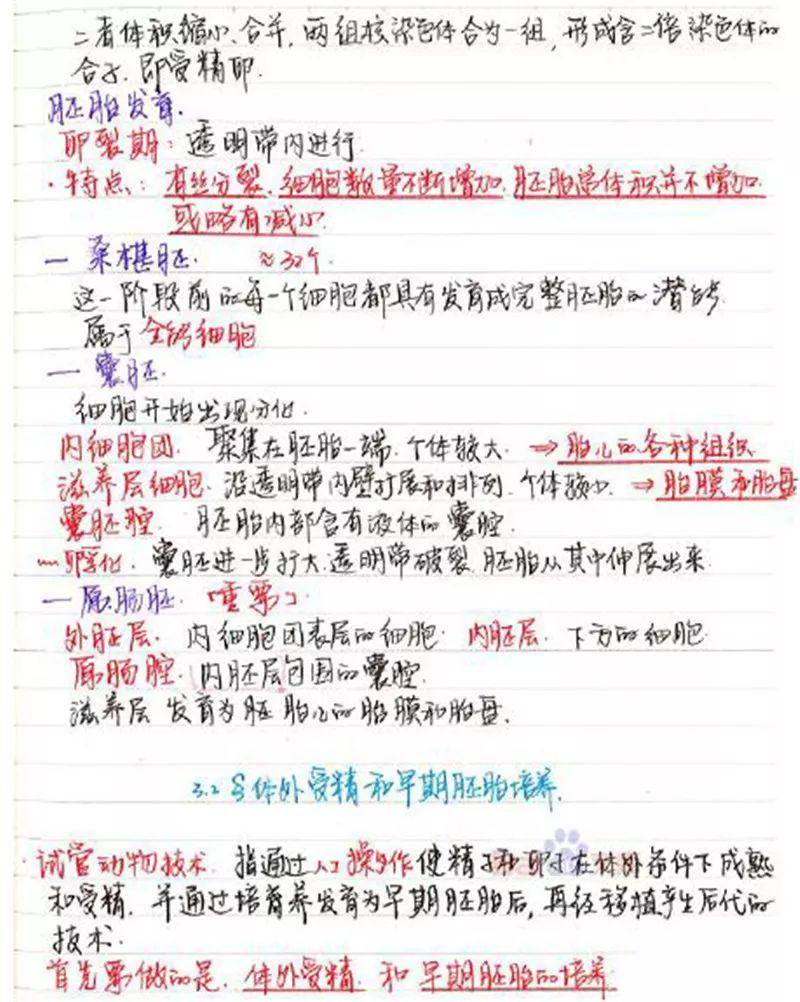 二者体积缩小、合并,两组核染色体合为一组,形成含二倍染色体的
合子,即受精卵.
胚胎发育.
卵裂期:透明带内进行.
·特点:有丝分裂.细胞数量不断增加.胚胎总体积并不增加.
或略有减小.
一 桑椹胚. ≈32个.
这一阶段前的每一个细胞都具有发育成完整胚胎的潜能.
属于全能细胞
一 囊胚.
细胞开始出现分化.
内细胞团. 聚集在胚胎一端.个体较大. ⇒ 胎儿的各种组织.
滋养层细胞. 沿透明带内壁扩展和排列.个体较小. ⇒ 胎膜和胎盘
囊胚腔. 胚胎内部含有液体的囊腔.
孵化. 囊胚进一步扩大.透明带破裂.胚胎从其中伸展出来.
一 原肠胚. 「重要」
外胚层. 内细胞团表层的细胞. 内胚层. 下方的细胞.
原肠腔. 内胚层包围的囊腔.
滋养层 发育为胚胎儿的胎膜和胎盘.
3.2 体外受精和早期胚胎培养.
·试管动物技术. 指通过人工操作使精子和卵子在体外条件下成熟
和受精.并通过培育养发育为早期胚胎后,再经移植产生后代的
技术.
首先要做的是.体外受精.和早期胚胎的培养